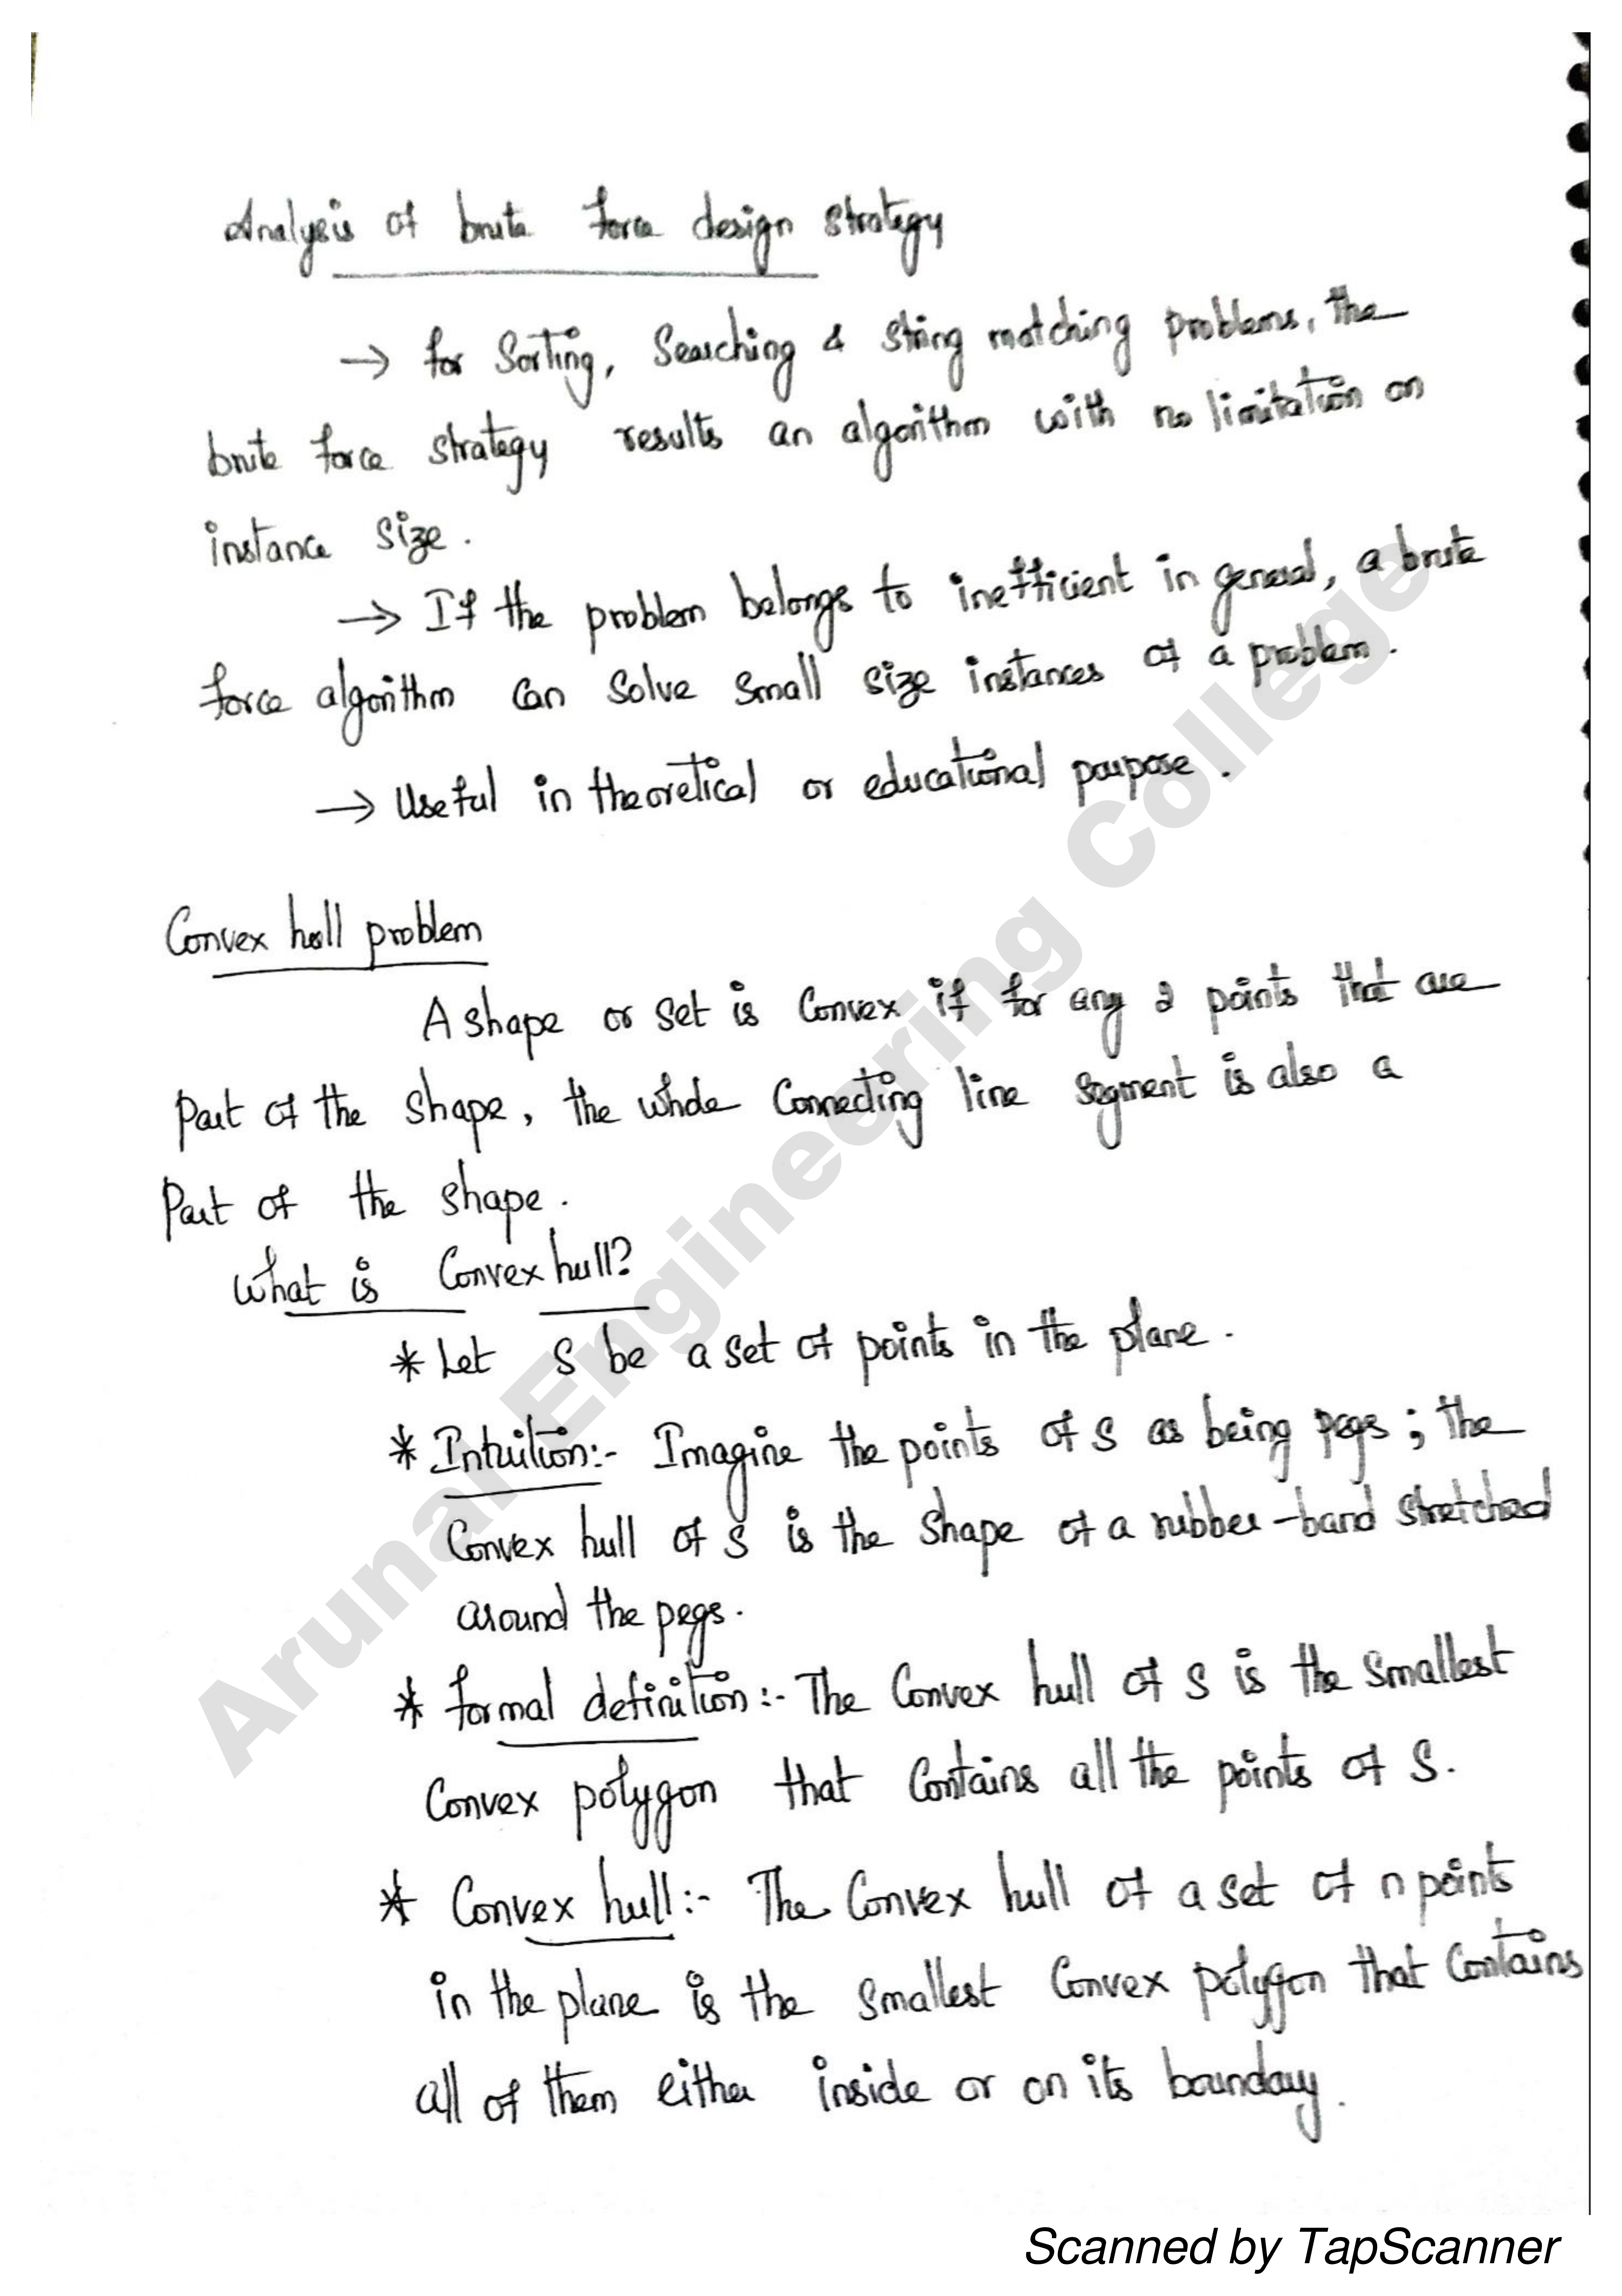 Analysis of brute force design strategy
→ for Sorting, Searching & String matching problems, the
brute force strategy results an algorithm with no limitation on
instance size.
→ If the problem belongs to inefficient in general, a brute
force algorithm can solve small size instances of a problem.
→ Useful in theoretical or educational purpose.
Convex hull problem
A shape or set is Convex if for any 2 points that are
part of the shape, the whole Connecting line segment is also a
part of the shape.
What is Convex hull?
* Let S be a set of points in the plane.
* Intuition:- Imagine the points of S as being pegs; the
Convex hull of S is the shape of a rubber-band stretched
around the pegs.
* formal definition:- The Convex hull of S is the smallest
Convex polygon that Contains all the points of S.
* Convex hull:- The Convex hull of a set of n points
in the plane is the smallest Convex polygon that Contains
all of them either inside or on its boundary.
Arunai Engineering College
Scanned by TapScanner